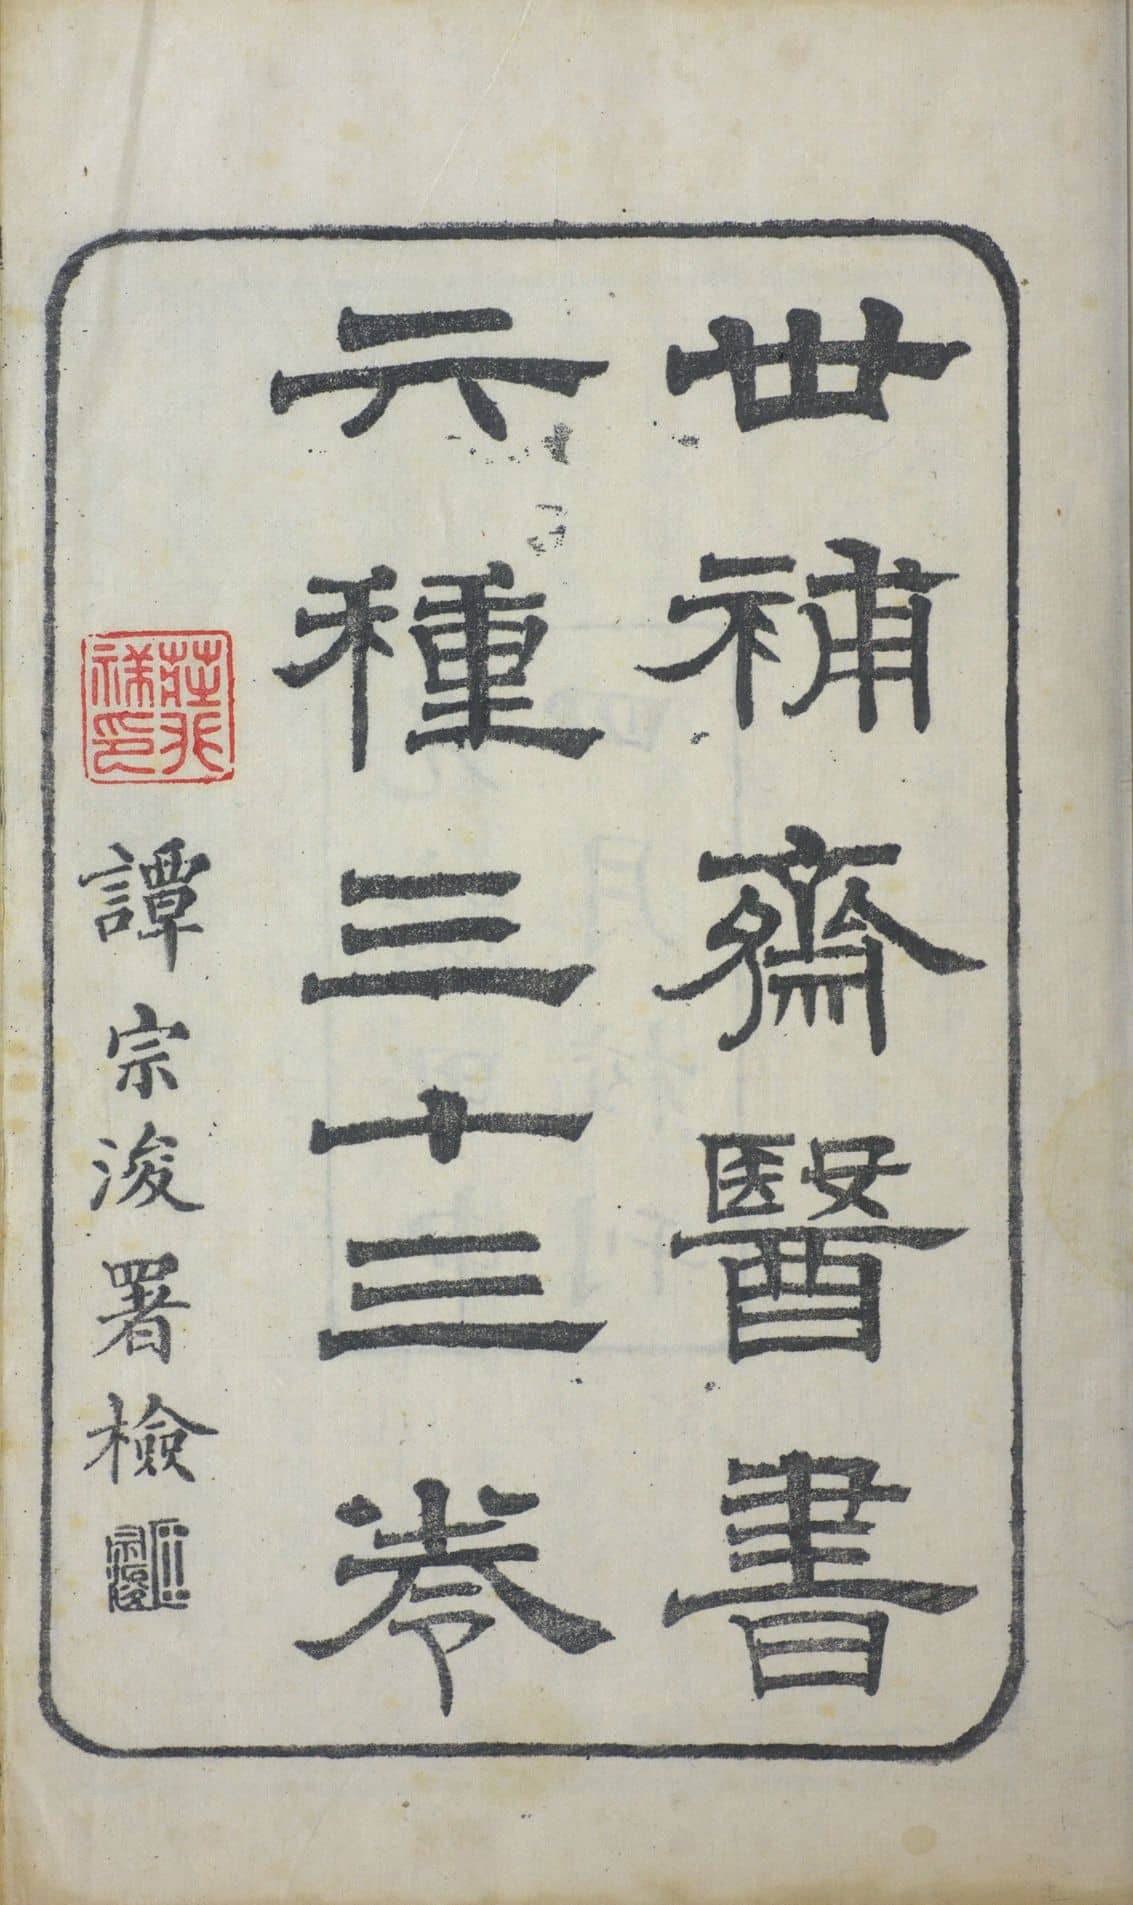 世補齋醫書
六種三十三卷
譚宗浚署檢